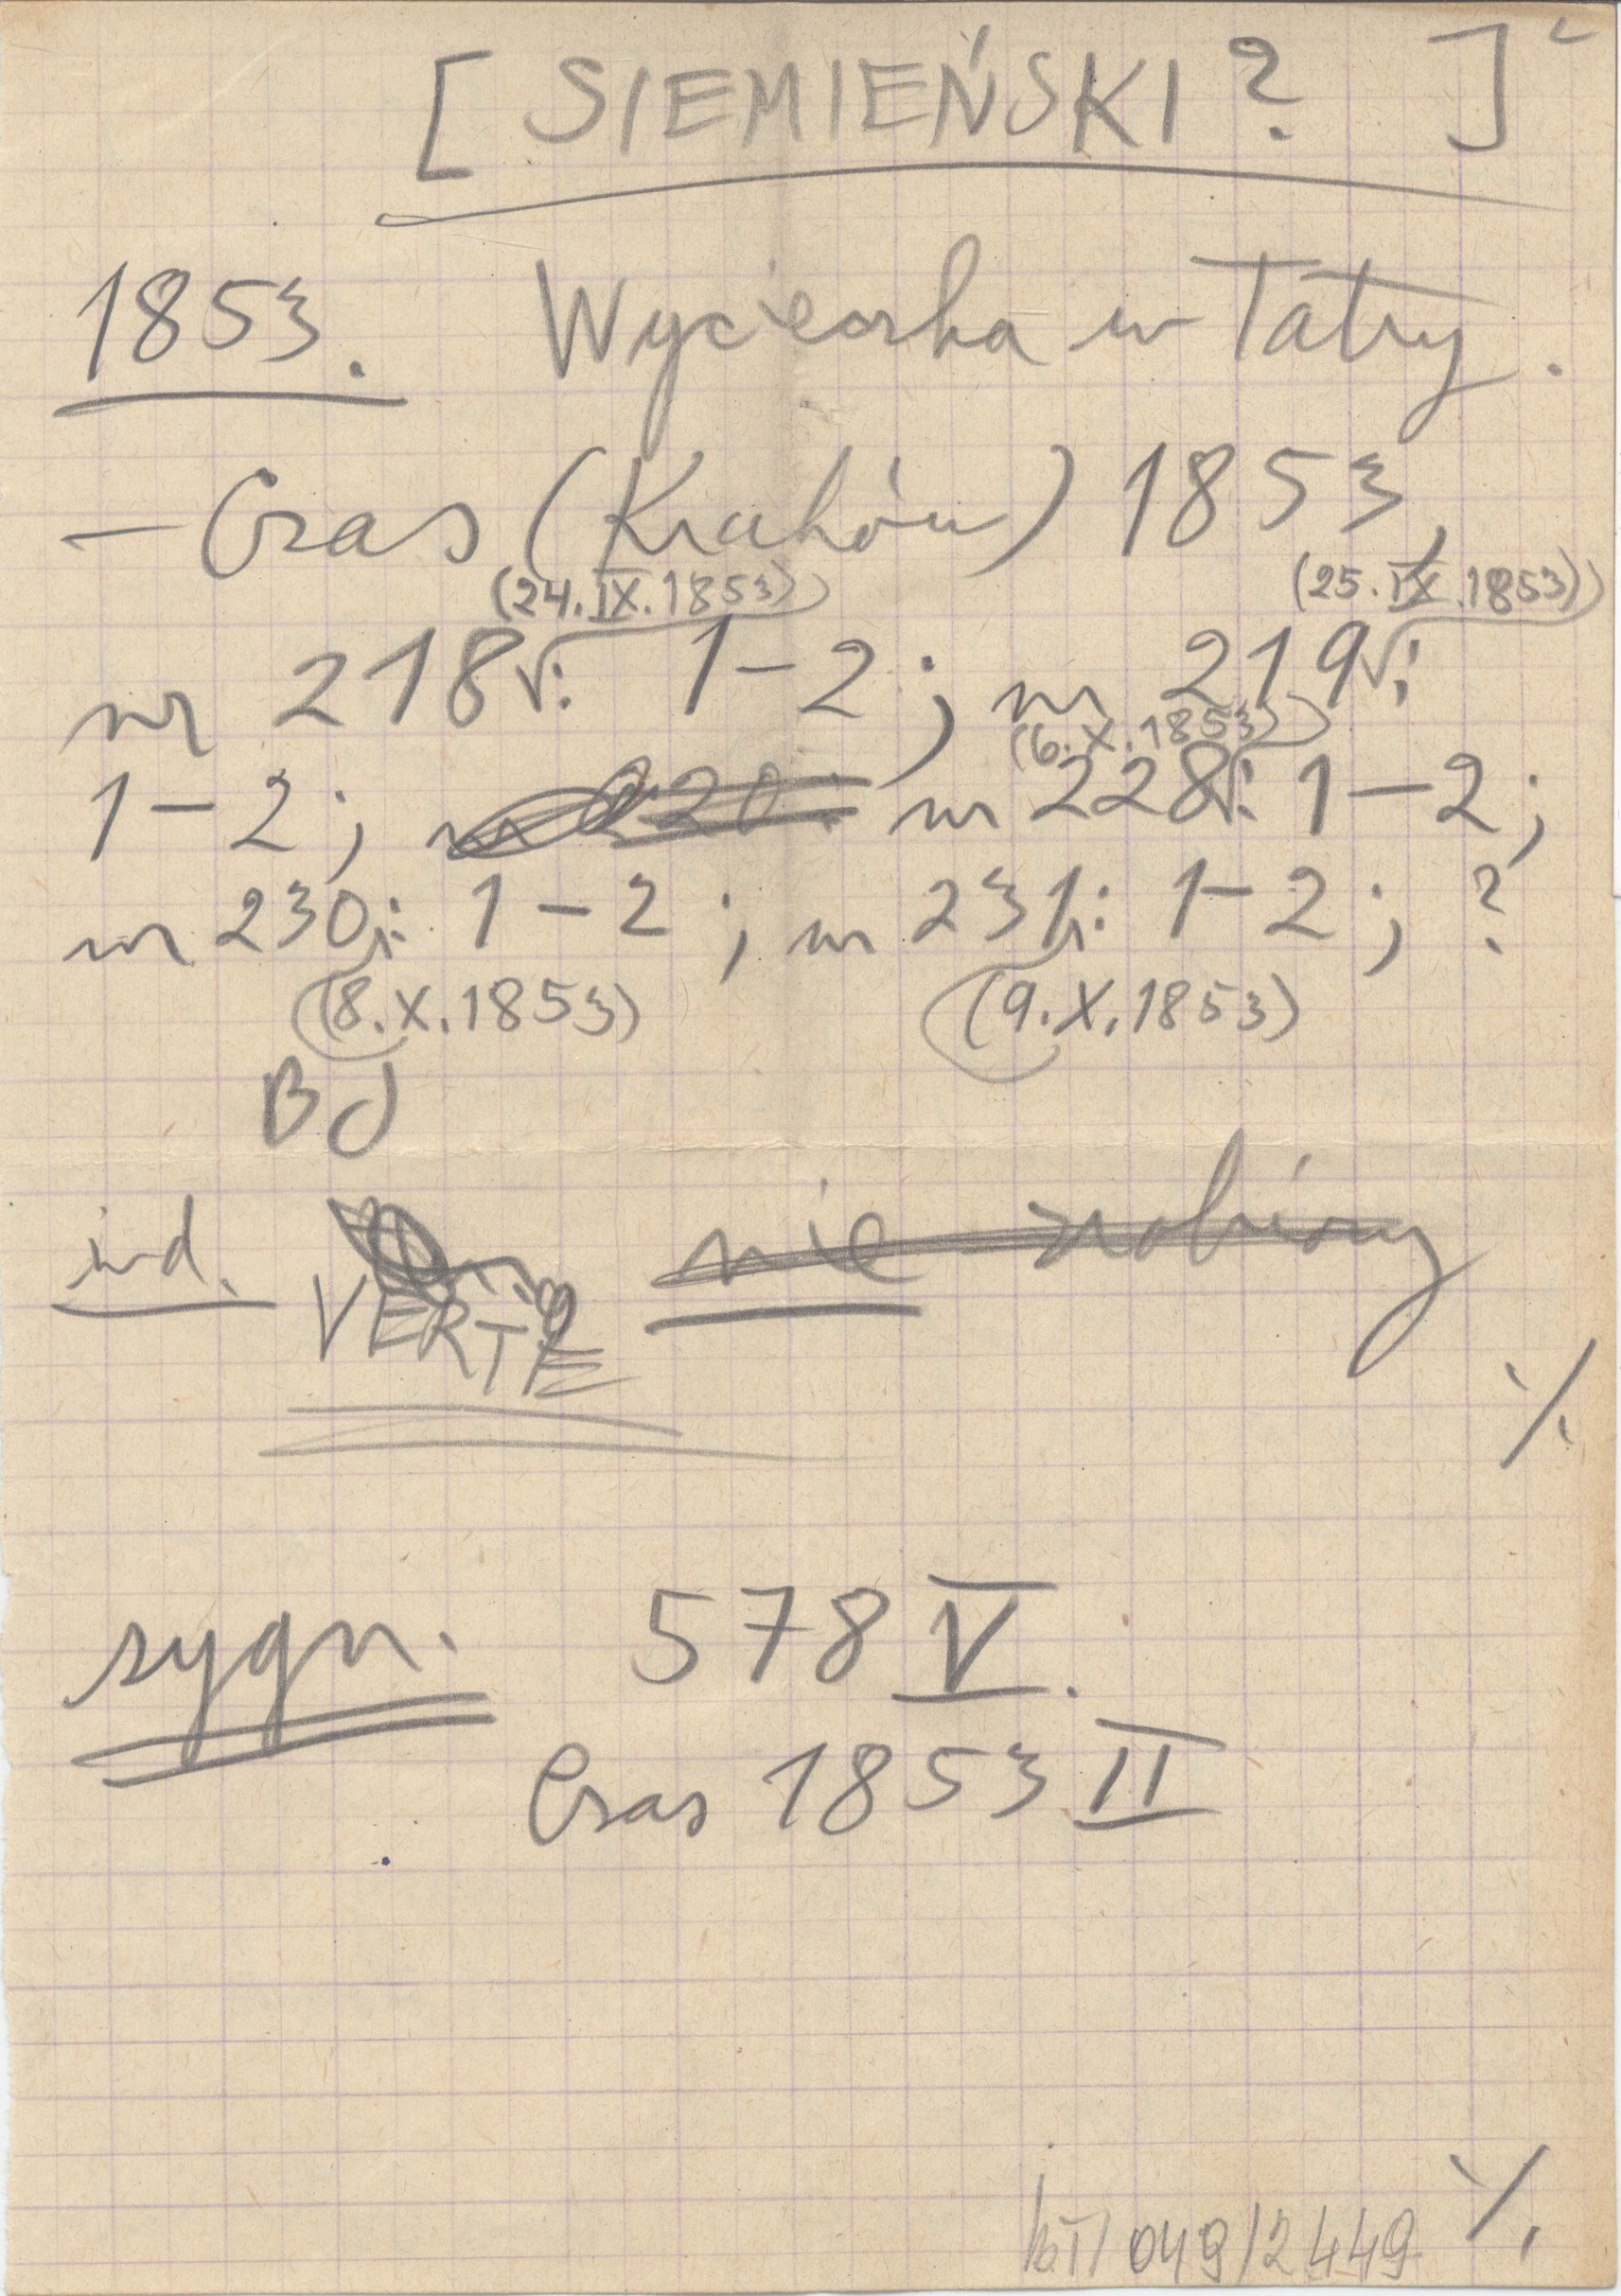 [ SIEMIEŃSKI ? ]
1853. Wycieczka w Tatry.
– Czas (Kraków) 1853,
(24.IX.1853) (25.IX.1853)
nr 218: 1–2; nr 219:
(6.X.1853)
1–2; nr 220: nr 228: 1–2;
nr 230: 1–2; nr 231: 1–2; ?
(8.X.1853) (9.X.1853)
BJ
ind. nie zrobiony
VERTE
./.
sygn. 578 V.
Czas 1853 II
./.
049/2449